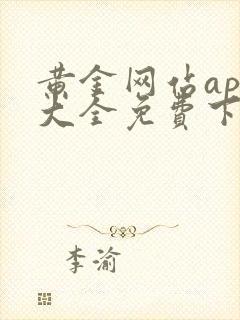 黄金网站ap
大全免費下
李渝